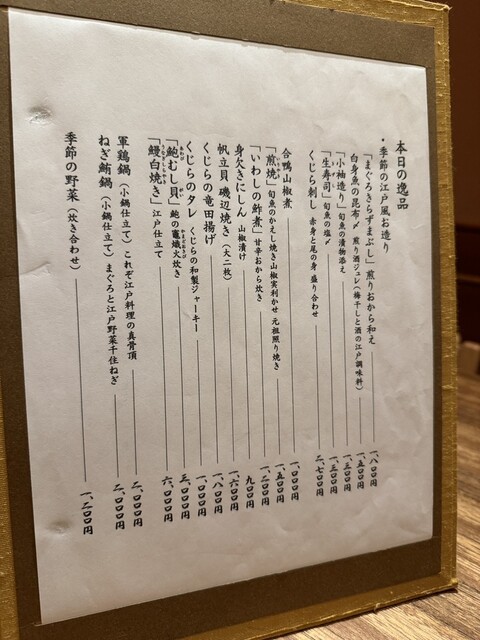 本日の逸品
・季節の江戸風お造り
「まぐろきらずまぶし」煎りおから和え 一、八〇〇円
白身魚の昆布〆 煎り酒ジュレ(梅干しと酒の江戸調味料) 一、五〇〇円
「小袖造り」旬魚の漬物添え 一、三〇〇円
「生寿司」旬魚の塩〆 一、三〇〇円
くじら刺し 赤身と尾の身 盛り合わせ 二、七〇〇円
合鴨山椒煮 一、〇〇〇円
「煎焼」旬魚のかえし焼き山椒実利かせ 元祖照り焼き 一、五〇〇円
「いわしの鮓煮」甘辛おから炊き 一、二〇〇円
身欠きにしん 山椒漬け 九〇〇円
帆立貝 磯辺焼き(大二枚) 一、六〇〇円
くじらの竜田揚げ 一、八〇〇円
くじらのタレ くじらの和製ジャーキー 一、〇〇〇円
「鮑むし貝」鮑の竈熾火炊き 三、〇〇〇円
「鰻白焼き」江戸仕立て 六、〇〇〇円
軍鶏鍋(小鍋仕立て)これぞ江戸料理の真骨頂 二、〇〇〇円
ねぎ鮪鍋(小鍋仕立て)まぐろと江戸野菜千住ねぎ 二、〇〇〇円
季節の野菜(炊き合わせ) 一、二〇〇円